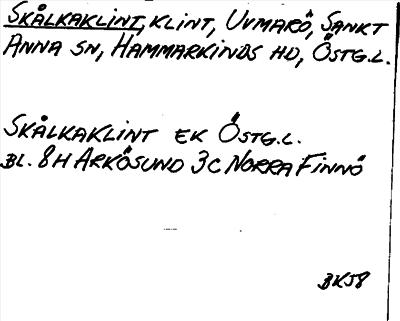 SKÅLKAKLINT, KLINT, UVMARÖ, SANKT
ANNA SN, HAMMARKINDS HD, ÖSTG.L.
SKÅLKAKLINT EK ÖSTG.L.
BL. 8H ARKÖSUND 3C NORRA FINNÖ
BKJ8